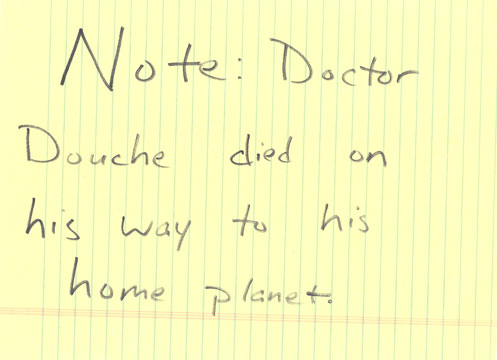 Note: Doctor
Douche died on
his way to his
home planet.